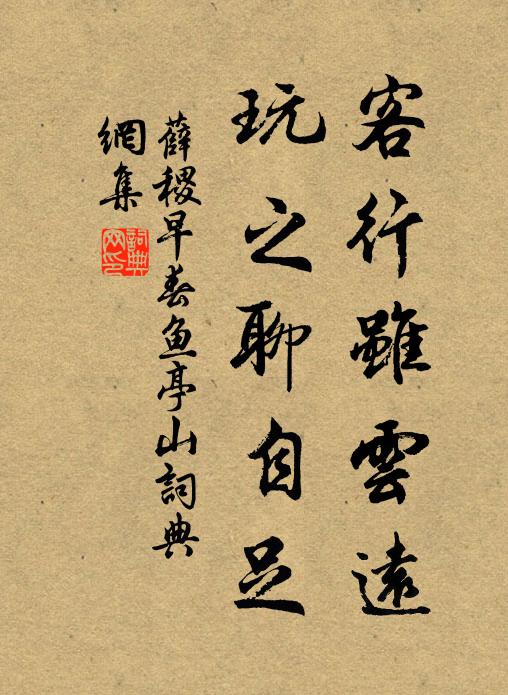 客行雖雲遠
玩之聊自足
薛稷早春魚亭山詞典
網集
詞典
网印